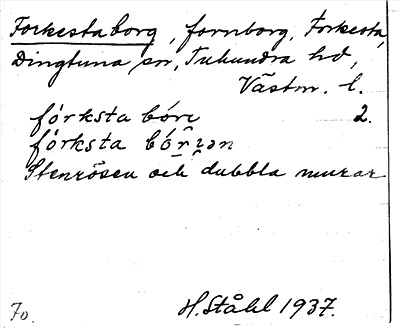 Forkesta borg, fornborg, Forkesta,
Dingtuna sn, Tuhundra hd,
Västm. l.
fórksta bórı 2.
fórksta bórıən
Stenrösen och dubbla murar
Fo. H. Ståhl 1937.